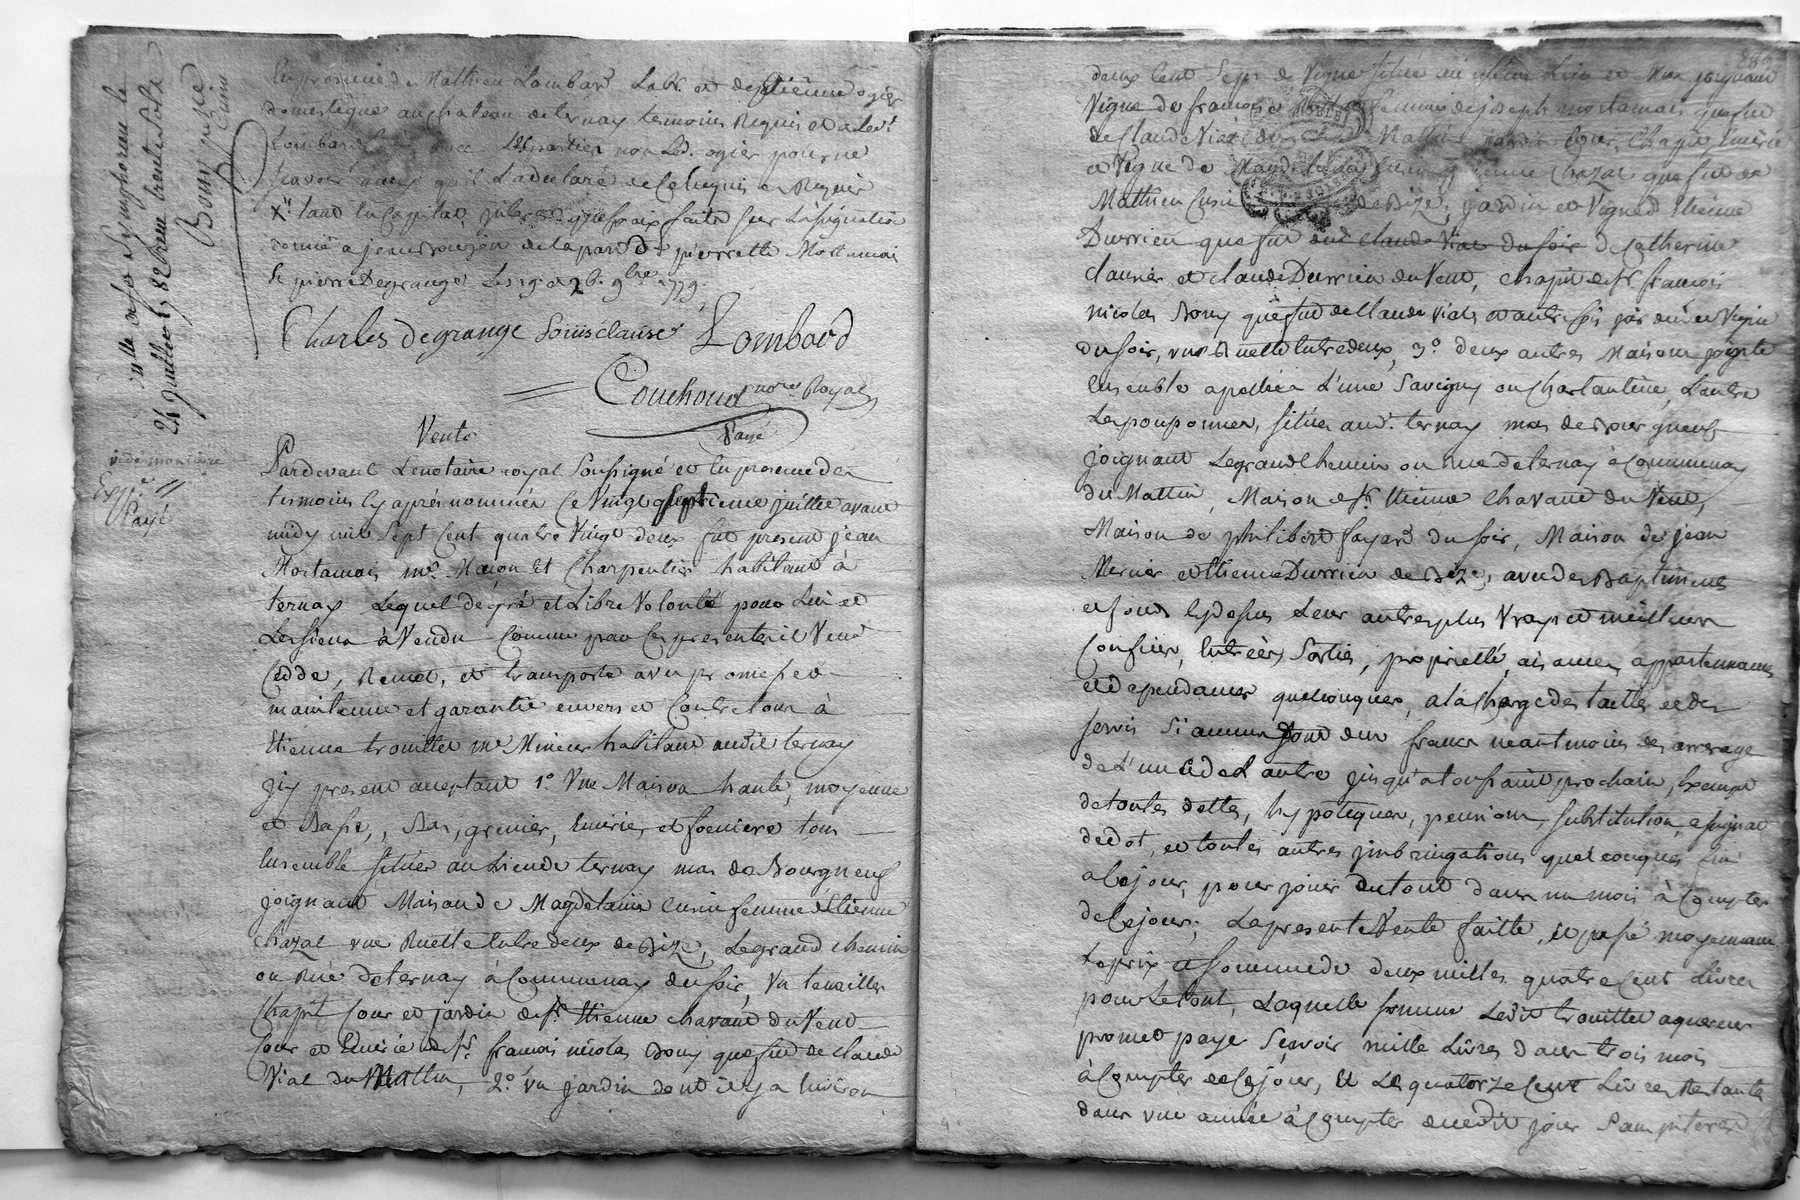 En presence de Mathieu Lombard Labr. et de Etienne ogier
domestique au chateau de ternay temoins Requis et a ledt
Lombard signé avec les parties non Led. ogier pour ne
scavoir ainsy qu'il La declaré de ce Enquis et Requis
donné a jean de la part de pierrette Mortamais
Charles degrange Sous clause Lombard
Couhoud nore Royal
Vente
payé
Pardevant Lenotaire royal Soussigné et En presence des
temoins Cy aprés nommés Ce Vingt septieme juillet avant
midy mil Sept Cent quatre Vingt deux fut present jean
Mortamais me Maçon Et Charpentier habitant à
ternay Lequel de gré et Libre Volonté pour Lui et
Les siens à Vendu Comme par Ces presentes il Vend
Cedde, Remet, et transporte avec promesse de
maintenue et garantie envers et Contre tous à
Etienne trouillet me Mineur habitant audit ternay
jcy present acceptant 1o. Une Maison haute, moyenne
et Basse, Bas, grenier, Ecuries, et foeniere tous
Ensemble située au Lieu de ternay mas de Bourgneuf
joignant Maison de Magdelaine Cusin femme d'Etienne
chazal une Ruette Entre deux de Bize, Le grand chemin
ou Rüe de ternay à Communay du soir, Un tenaillier
Chapit Cour et jardin de sr. Etienne chavant du Vent
Cour et Ecurie de sr. francois nicolas Bony que fut de claude
Vial du Mattin, 2o. un jardin dont il y a Environ
Sulle et fo Symphorien le
24 juillet 1782 Reçu trente sols
vide mon livre
Expe.
Payé
deux Cent Sept de Vigne située au même Lieu et Mas joignant
Vigne de francois femme de joseph mortamais que fut
de Claude Vial du Mattin jardin Cour, Chapit Ecurie
et Vigne de Magdelaine Cusin femme Chazal que fut de
Mathieu Cusin de Bize, jardin et Vigne d'Etienne
Durrieu que fut dud. claude Vial du soir de Catherine
clavier et claude Durrieu du Vent, chapit de sr. francois
nicolas Bony que fut de Claude Vial, et autrefois jardin et Vigne
du soir, une Ruette Entre deux, 3o. deux autres Maisons jointe
Ensemble apellées L'une Savigny ou Chartantine, L'autre
Les pouponnes, situées aud. ternay mas de Bourgneuf
joignant Le grand Chemin ou Rue de ternay à Communay
du Mattin, Maison de sr. Etienne Chavant du Vent,
Maison de philibert fayard du soir, Maison de jean
Mernier et Etienne Durrieu de Bize, avec des Baptiments
et fonds Cy dessus Leurs autres plus Vrays et meilleurs
Confins, Entrées, Sorties, proprietté, aisances, appartenances
et dependances quelconques, à la charge des tailles et des
servis Si aucuns sont dus francs neantmoins des arrerages
de L'un et de L'autre jusqu'a toussaint prochain, Exempt
de toutes dettes, hypoteques, pensions, substitution, assignat
de dot, et toutes autres jmbringations quelconques
a Ce jour, pour jouir du tout dans un mois à Compter
de Ce jour; La presente Vente faitte, et passé moyennant
Le prix et somme de deux milles quatre Cent Livres
pour Le tout, Laquelle somme Ledit trouillet aquereur
promet payer Scavoir mille Livres dans trois mois
à Compter de Ce jour, Et Les quatorze Cent Livres Restante
dans une année à Compter de cedit jour Sans jnterest